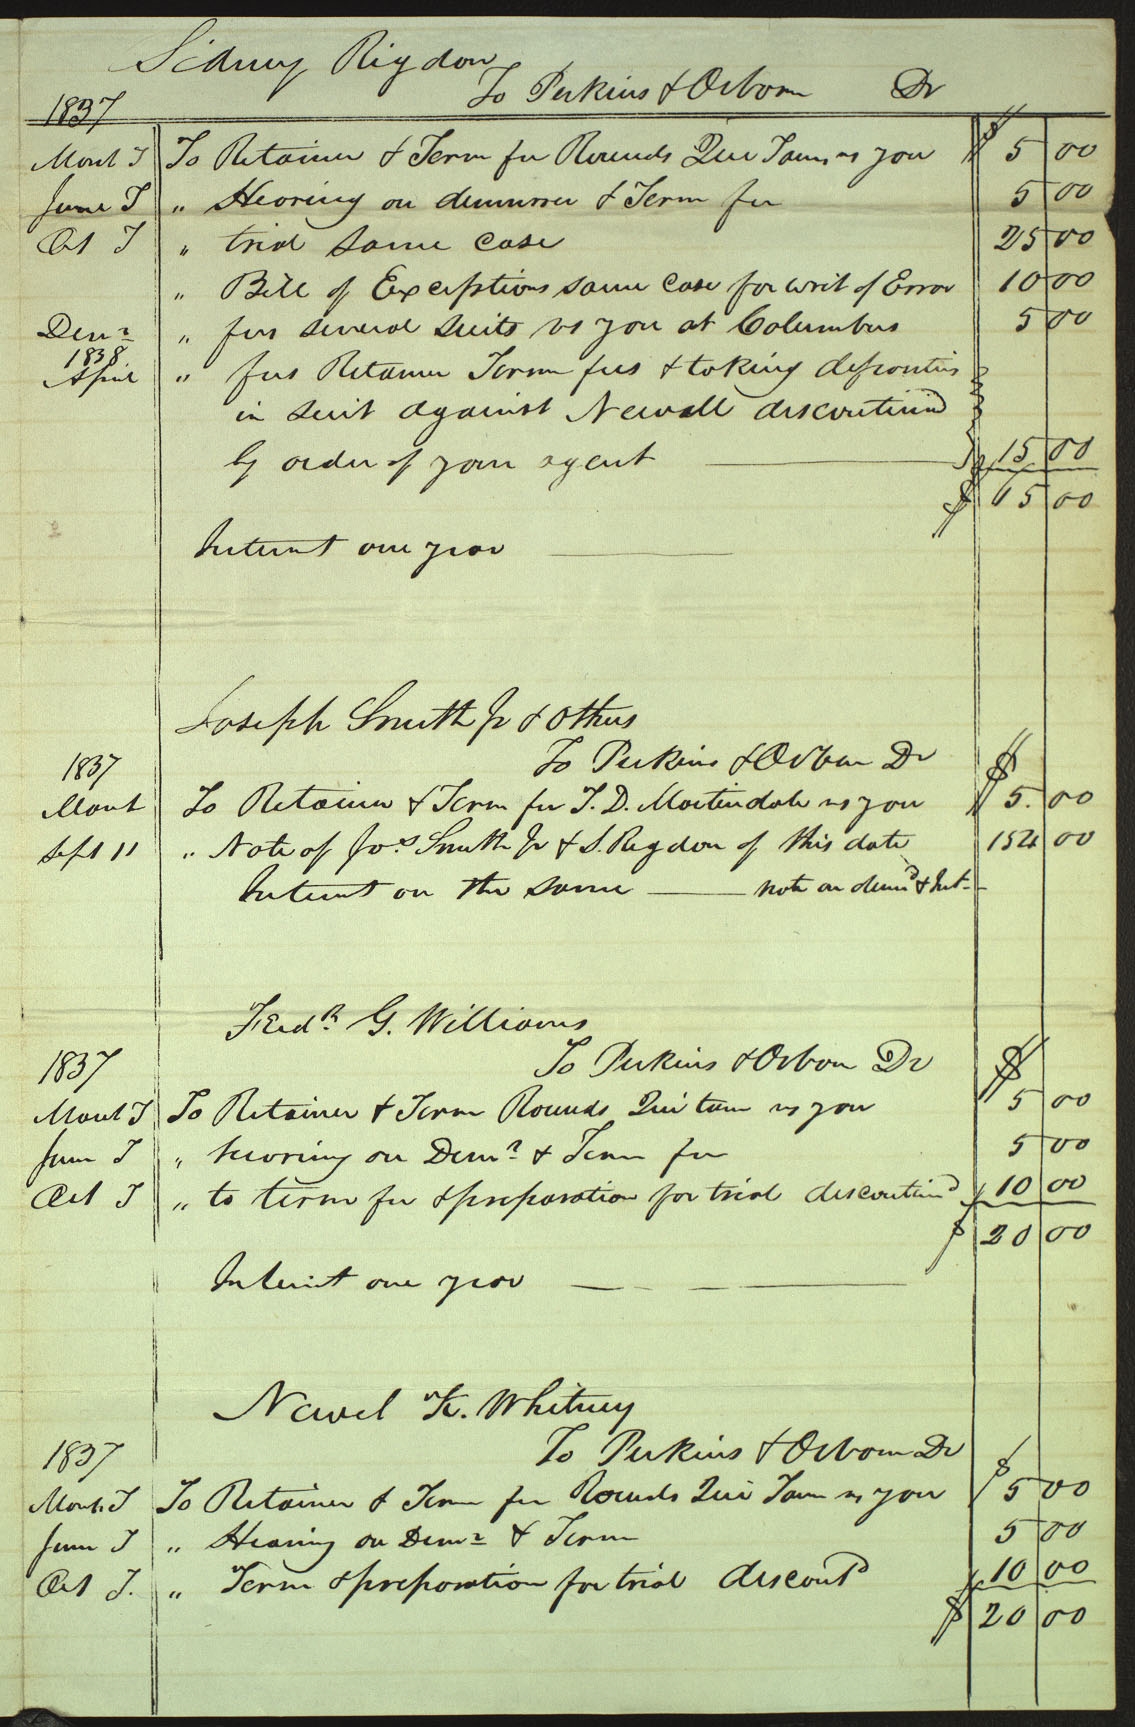 Sidney Rigdon
To Perkins & Osborn Dr
1837
March T To Retainer & Term fee Rounds Qui Tam vs you $5 00
June T " Hearing on demurrer & Term fee 5 00
Oct T " trial same case 25 00
" Bill of Exceptions same case for writ of Error 10 00
Decr " fees several suits vs you at Columbus 5 00
1838
April " fees Retainer Term fees & taking depositions
in suit against Newell discontinud
by order of your agent 15 00
$ 65 00
Interest one year
Joseph Smith Jr & Others
To Perkins & Osborn Dr
1837
March To Retainer & Term fee T. D. Martindale vs you $5. 00
Sept 11 " Note of Jos Smith Jr & S. Rigdon of this date 154 00
Interest on the same note on demd & Int
Fredk G. Williams
To Perkins & Osborn Dr
1837
March T To Retainer & Term Rounds Qui tam vs you $5 00
June T " hearing on Demr & Term fee 5 00
Oct T " to term fee & preparation for trial discontind 10 00
$ 20 00
Interest one year
Newel K. Whitney
To Perkins & Osborn Dr
1837
March T To Retainer & Term fee Rounds Qui Tam vs you $5 00
June T " Hearing on Demr & Term 5 00
Oct T. " Term & preparation for trial discontd 10 00
$ 20 00